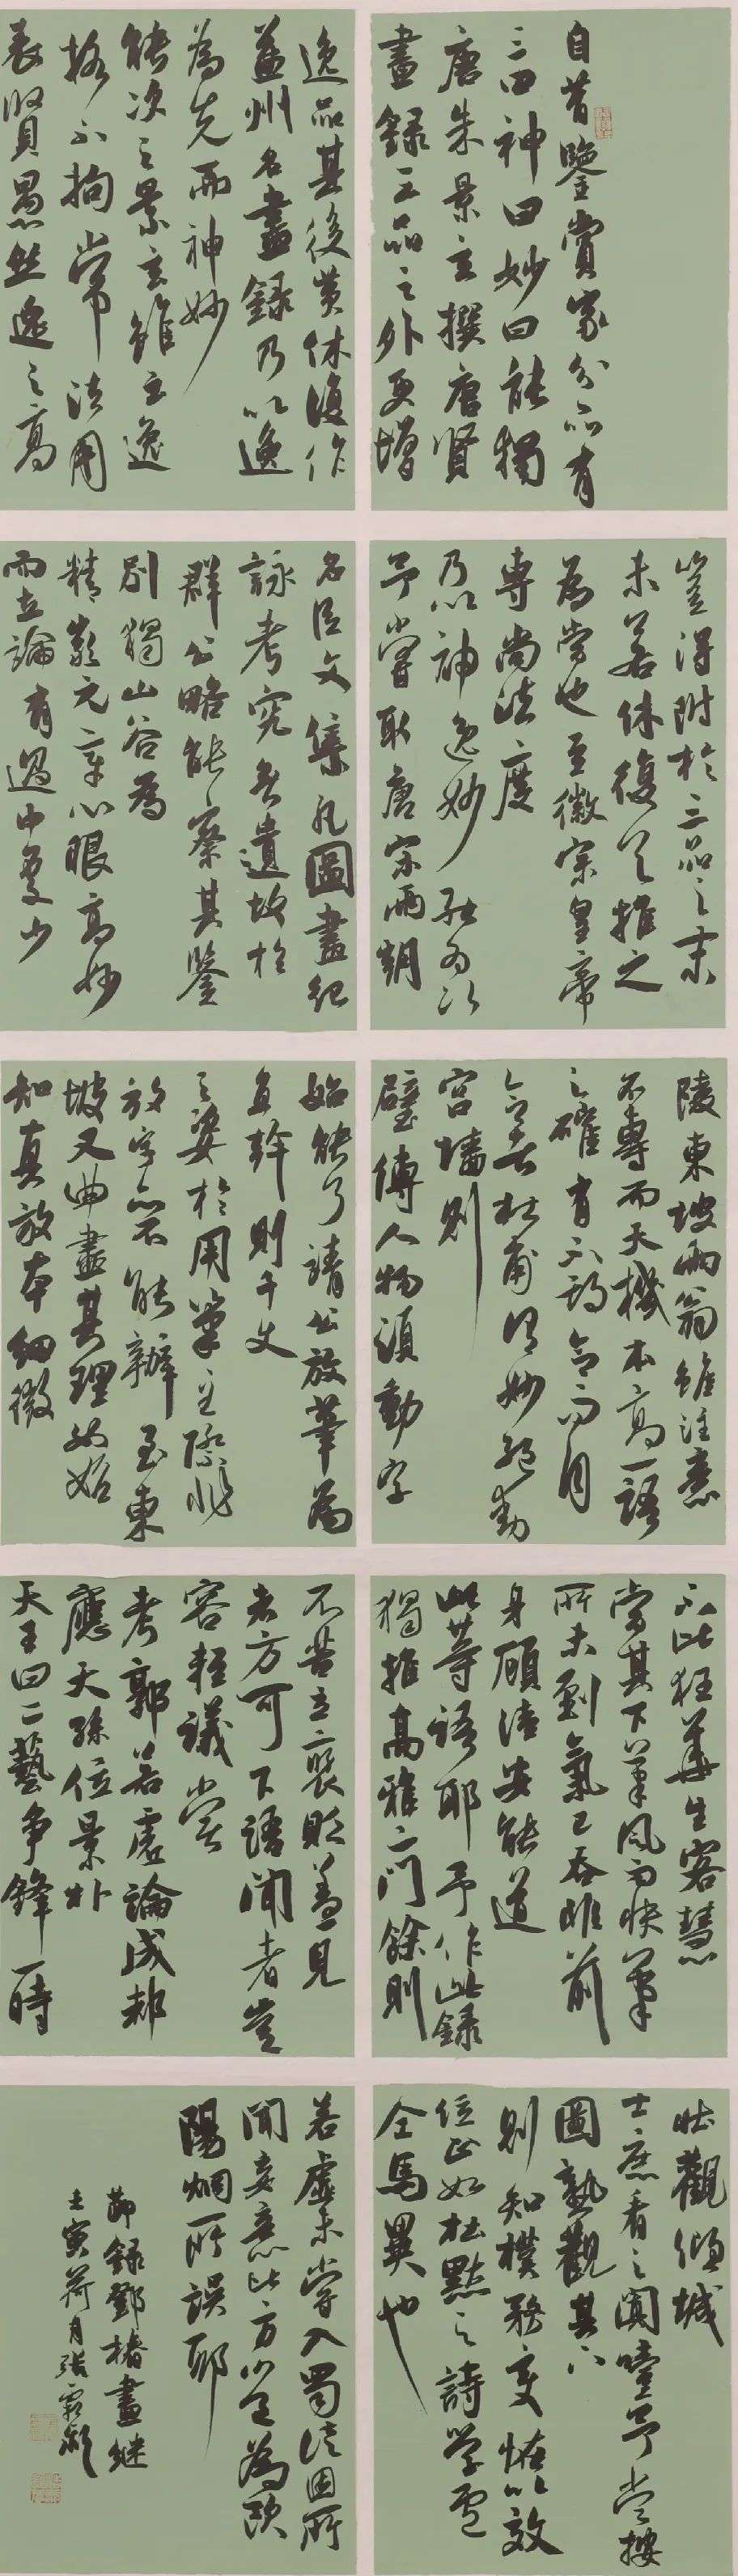 自昔鑒賞家分品有
三曰神曰妙曰能獨
唐朱景玄撰唐賢
畫錄三品之外更增
逸品其後黃休復作
益州名畫錄乃以逸
為先而神妙
能次之景玄雖云逸
格不拘常法用
表賢愚然逸之高
豈得附於三品之末
未若休復之推之
為當也至徽宗皇帝
專尚法度
乃以神逸妙能為次
予嘗取唐宋兩朝
名臣文集凡圖畫紀
詠考究無遺故於
群公略能察其鑒
別獨山谷為
精嚴元章心眼高妙
而立論有過中處少
陵東坡兩翁雖注意
不專而天機本高一語
之確有不期合而自
合者杜甫得妙絕動
宮墻則
壁傳人物須動字
始能了請公放筆為
直幹則千丈
之姿於用筆之際非
放字亦不能辦至東
坡又曲盡其理如始
知真放本細微
不比狂華生客慧
當其下筆風雨快筆
所未到氣已吞非前
身顧陸安能道
此等語耶予作此錄
獨推高雅二門餘則
不苦立褒貶蓋見
者方可下語聞者豈
容輕議嘗
考郭若虛論成都
應天孫位景朴
天王曰二藝爭鋒一時
壯觀傾城
士庶看之闐噎予嘗按
圖熟觀其下
則知樸務變怪以效
位正如杜默之詩學盧
仝馬異也
若虛未嘗入蜀徒因所
聞妄意比方似是為歐
陽炯所誤耶
節錄鄧椿畫繼
壬寅荷月張霜凝